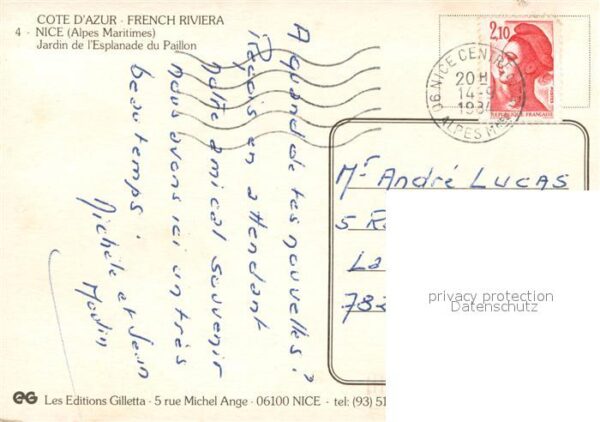 COTE D'AZUR - FRENCH RIVIERA
4 - NICE (Alpes Maritimes)
Jardin de l'Esplanade du Paillon
2,10
POSTES
REPUBLIQUE FRANÇAISE
06 NICE CENTRE
20H
14-9
198
ALPES MMES
A quand de tes nouvelles ?
Reçois en attendant
notre amical souvenir
nous avons ici un très
beau temps.
Michèle et Jean
Mr André LUCAS
5 R
La
782
privacy protection
Datenschutz
EG Les Editions Gilletta - 5 rue Michel Ange - 06100 NICE - tel: (93) 51